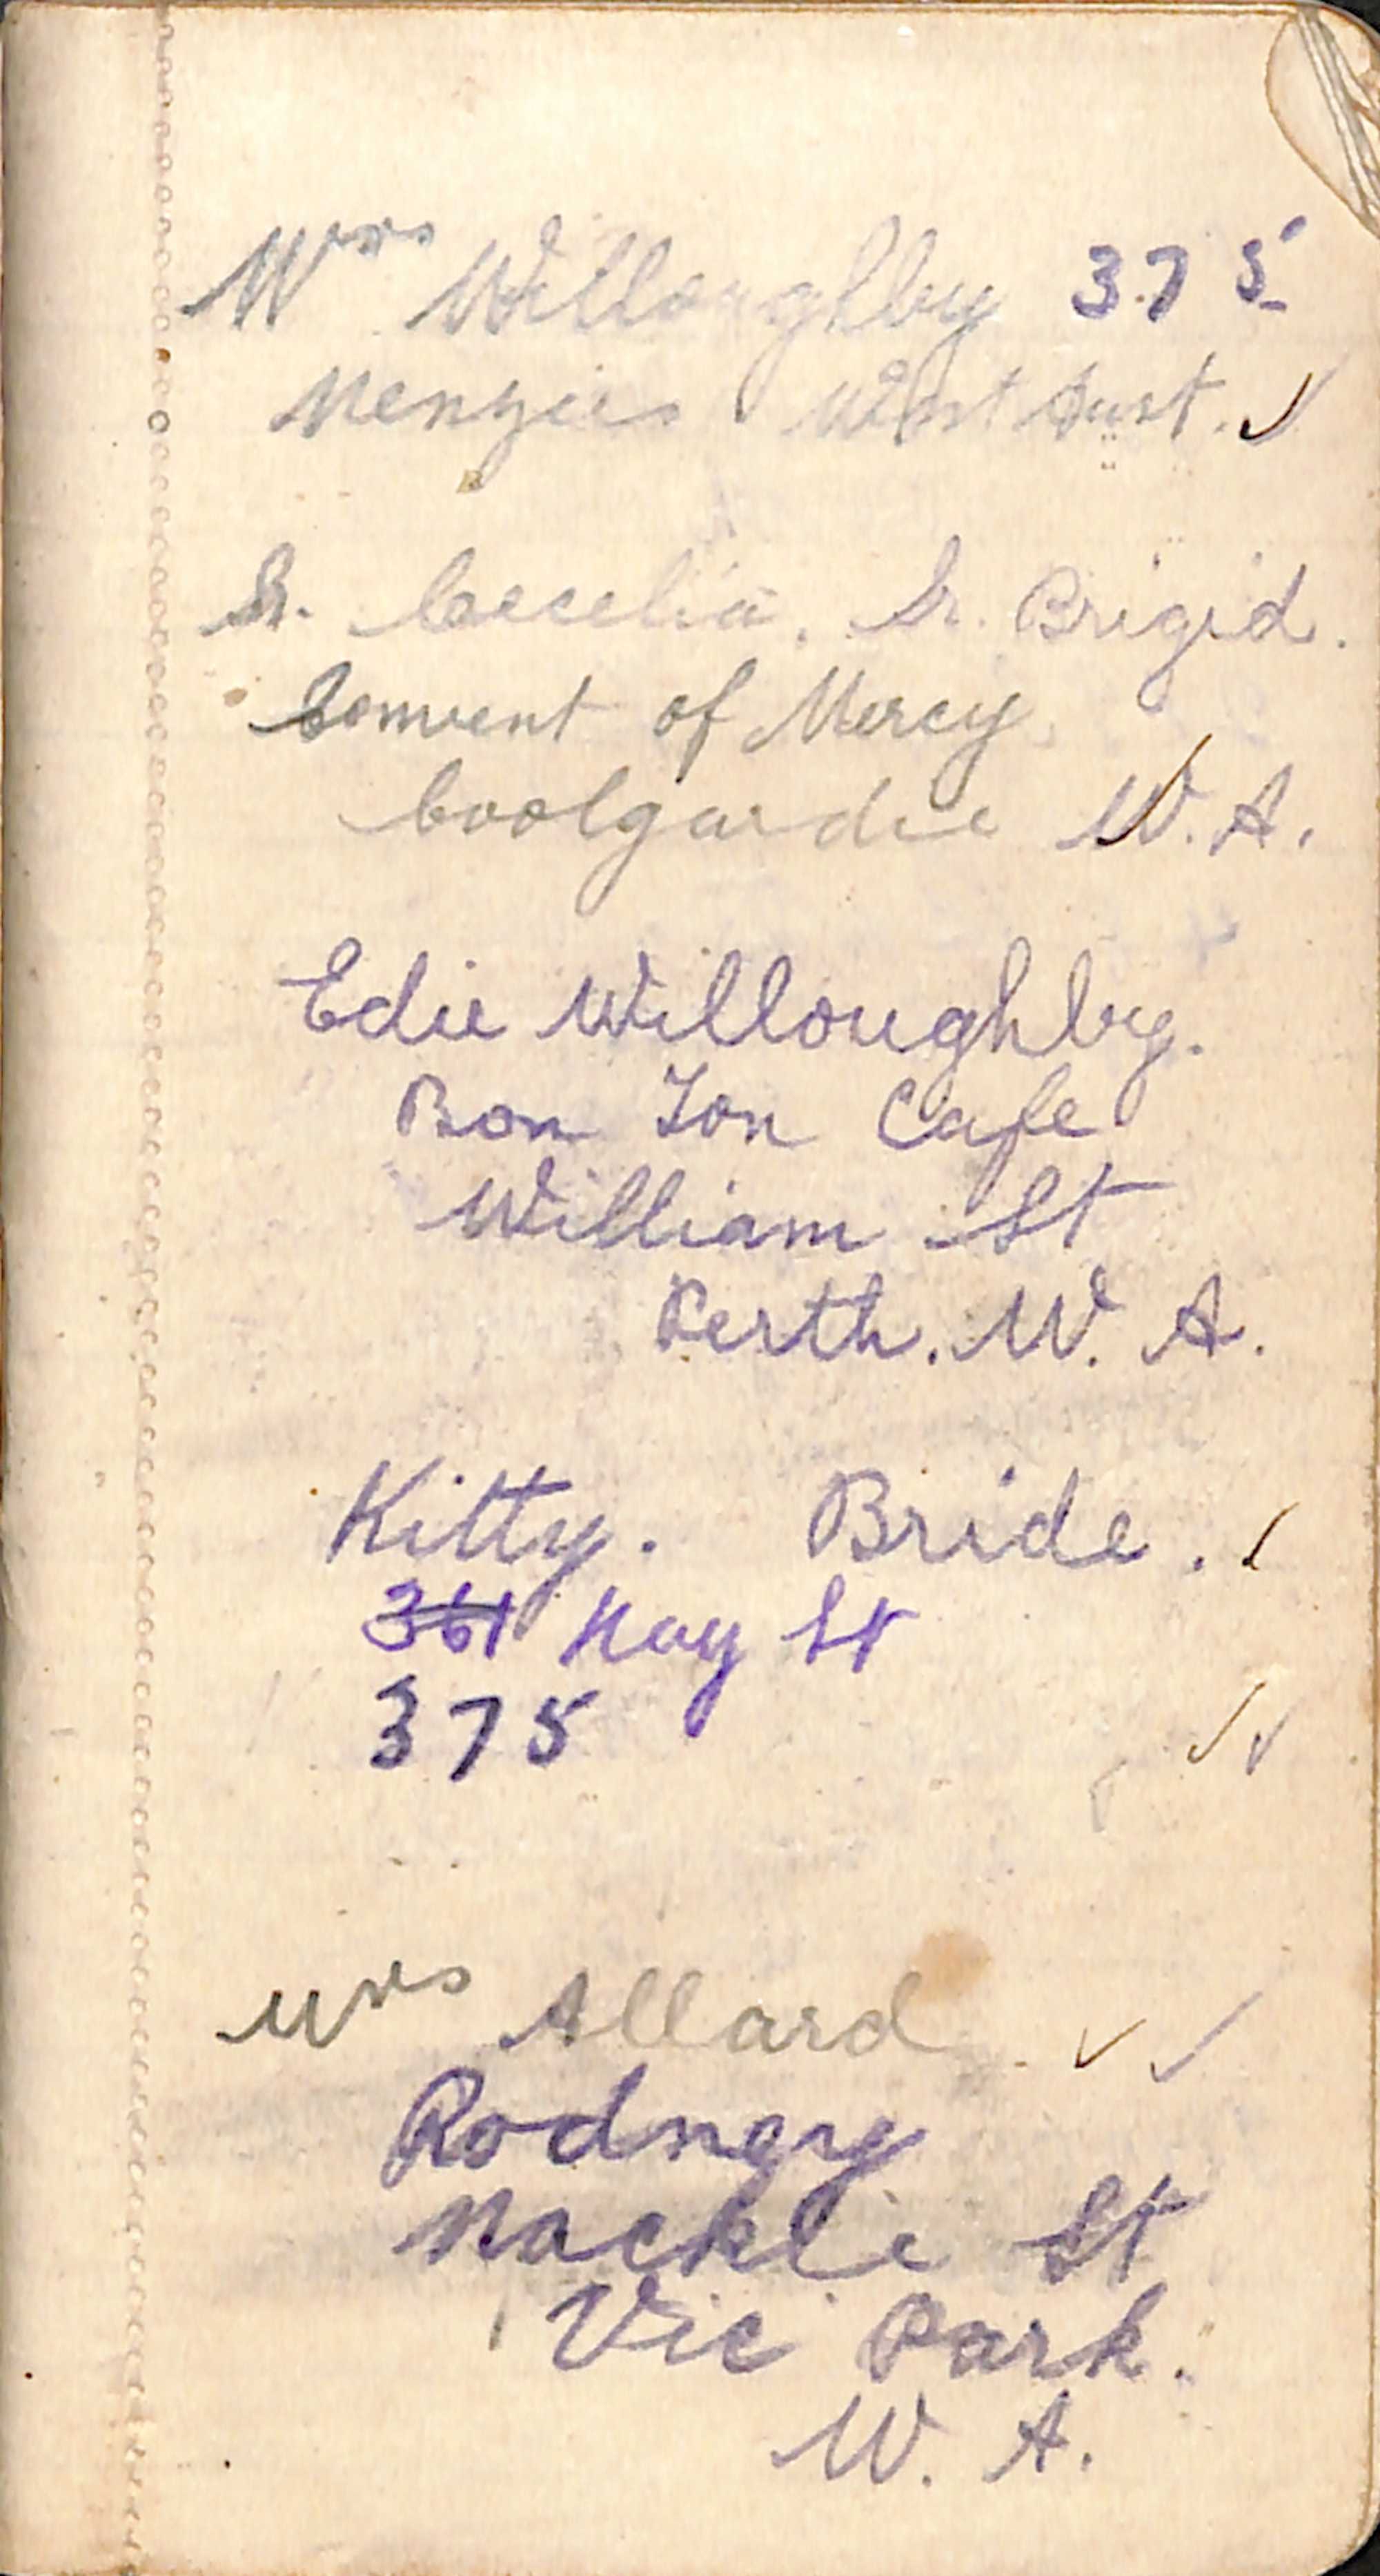 Mrs Willoughby 375
Menzies West Aust. ✓
Sr. Cecelia. Sr. Brigid.
Convent of Mercy
Coolgardie W. A.
Edie Willoughby.
Bon Ton Cafe
William St
Perth. W. A.
Kitty. Bride. ✓
361 Hay St
375 ✓✓
Mrs Allard ✓✓
Rodney
Mackie St
Vic Park.
W. A.